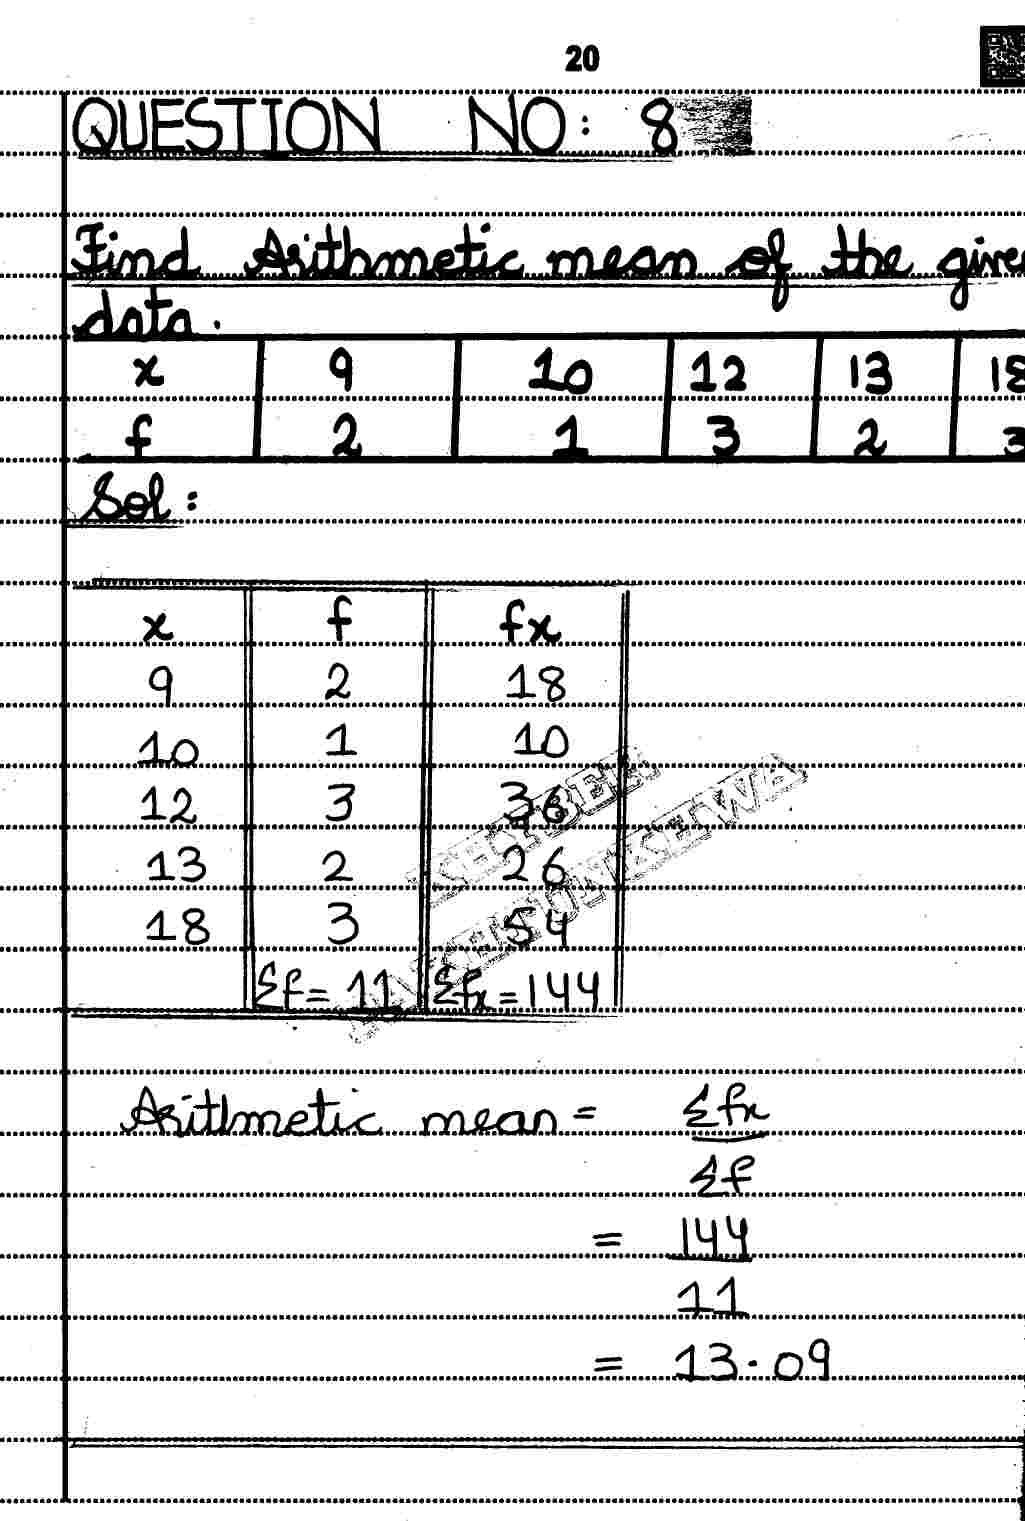 20
QUESTION NO: 8
Find Arithmetic mean of the give
data.
x 9 10 12 13 18
f 2 1 3 2 3
Sol:
x f fx
9 2 18
10 1 10
12 3 36
13 2 26
18 3 54
Σf = 11 Σfx = 144
KHYBER
PAKHTUNKHWA
Arithmetic mean = Σfx
Σf
= 144
11
= 13.09